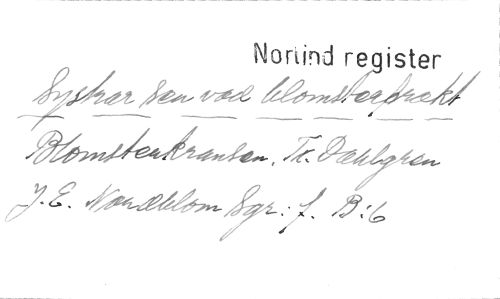 Norlind register
Systrar sen vad blomsterprakt
Blomsterkransen. Th. Dahlgren
J. E. Nordblom Sgr: f. B:6